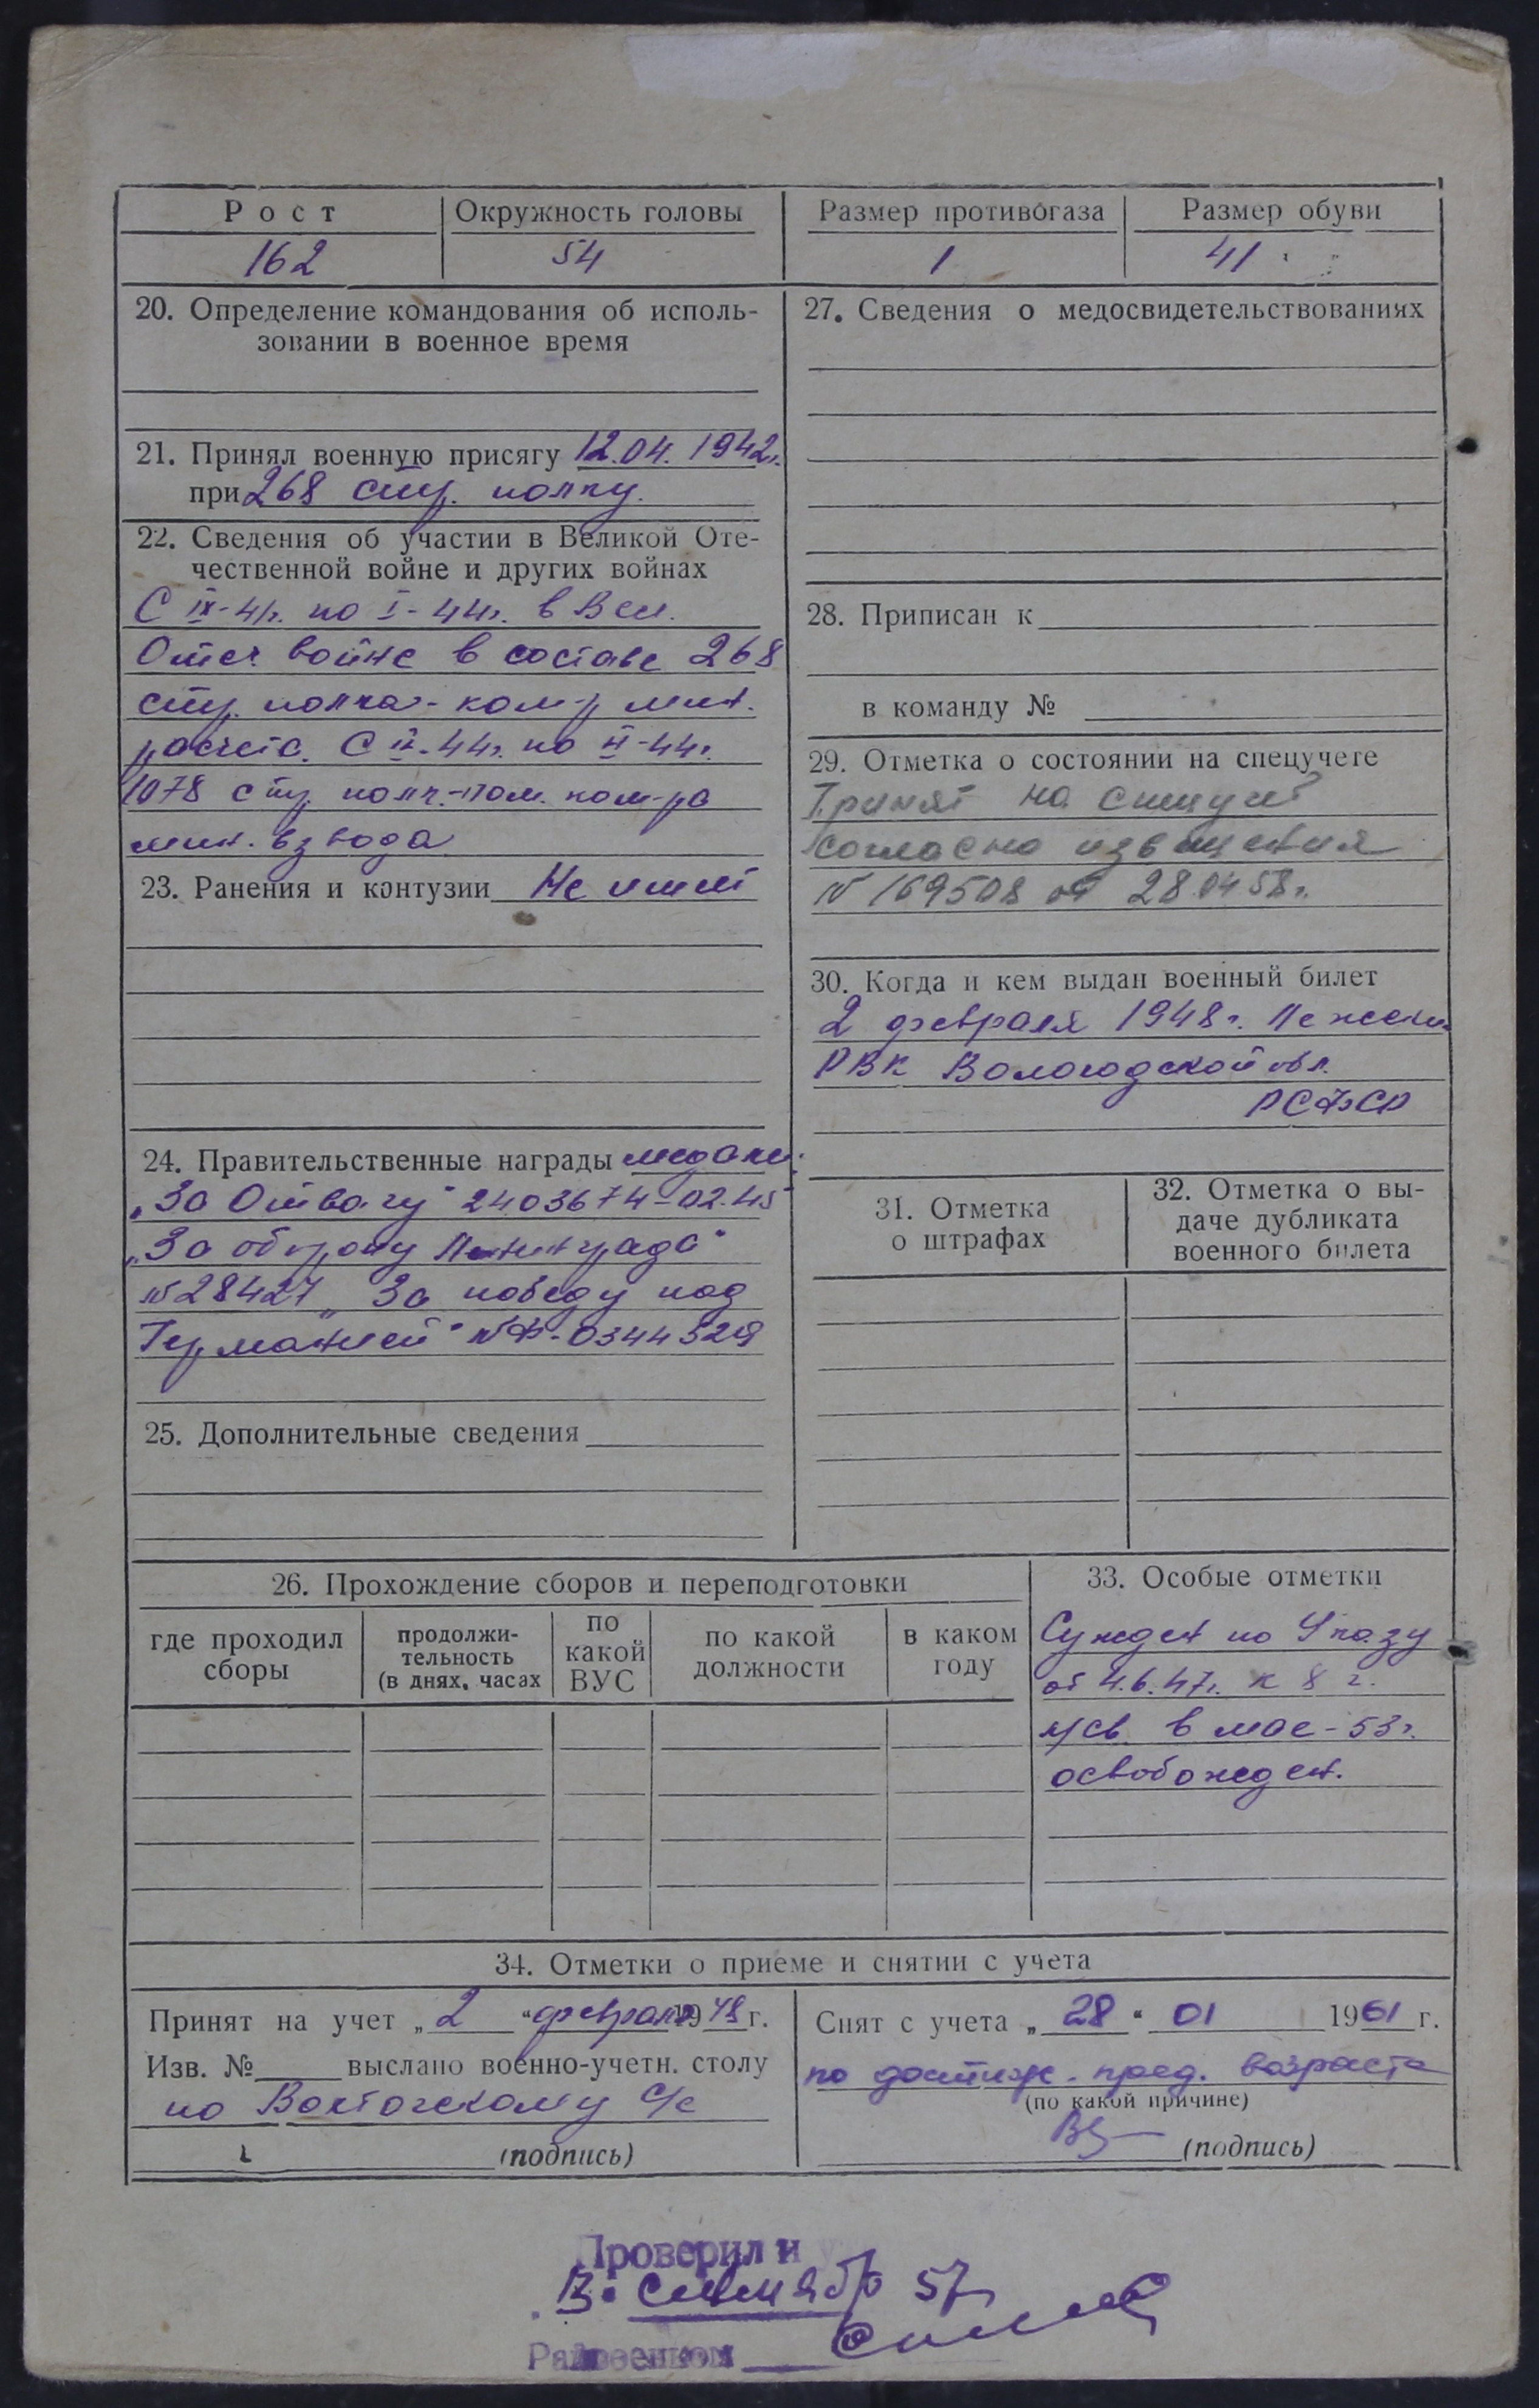 Рост
Окружность головы
Размер противогаза
Размер обуви
162
54
1
41
20. Определение командования об исполь-
зовании в военное время
21. Принял военную присягу 12.04.1942г.
при 268 стр. полку.
22. Сведения об участии в Великой Оте-
чественной войне и других войнах
С IX-41г. по I-44г. в Вел.
Отеч. войне в составе 268
стр. полка - ком-р мин.
расчета. С II-44г. по
1078 стр. полк.-пом. ком-ра
мин. взвода
23. Ранения и контузии Не имеет
24. Правительственные награды медали:
„За Отвагу" 2403674-02.45
„За оборону Ленинграда"
№28427 „За победу над
Германией" №Ф-0344329
25. Дополнительные сведения
27. Сведения о медосвидетельствованиях
28. Приписан к
в команду №
29. Отметка о состоянии на спецучете
Принят на спецучет
согласно извещения
№ 169508 от 28.04.58г.
30. Когда и кем выдан военный билет
2 февраля 1948г.
РВК Вологодской обл.
РСФСР
31. Отметка
о штрафах
32. Отметка о вы-
даче дубликата
военного билета
26. Прохождение сборов и переподготовки
где проходил
сборы
продолжи-
тельность
(в днях, часах
по
какой
ВУС
по какой
должности
в каком
году
33. Особые отметки
Сужден по Указу
от 4.6.47г. к 8 г.
л/св. в мае-53г.
освобожден.
34. Отметки о приеме и снятии с учета
Принят на учет „2" февраля 1948 г.
Изв. № выслано военно-учетн. столу
по Вохтожскому с/с
(подпись)
Снят с учета „28" 01 1961 г.
по достиж. пред. возраста
(по какой причине)
(подпись)
Проверил и
сентябр 57г
Райвоенком